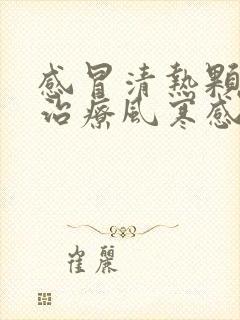 感冒清熱顆
治療風寒感
崔麗